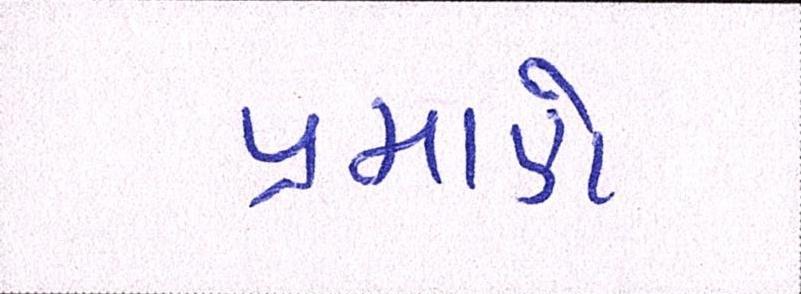 પ્રમાણે